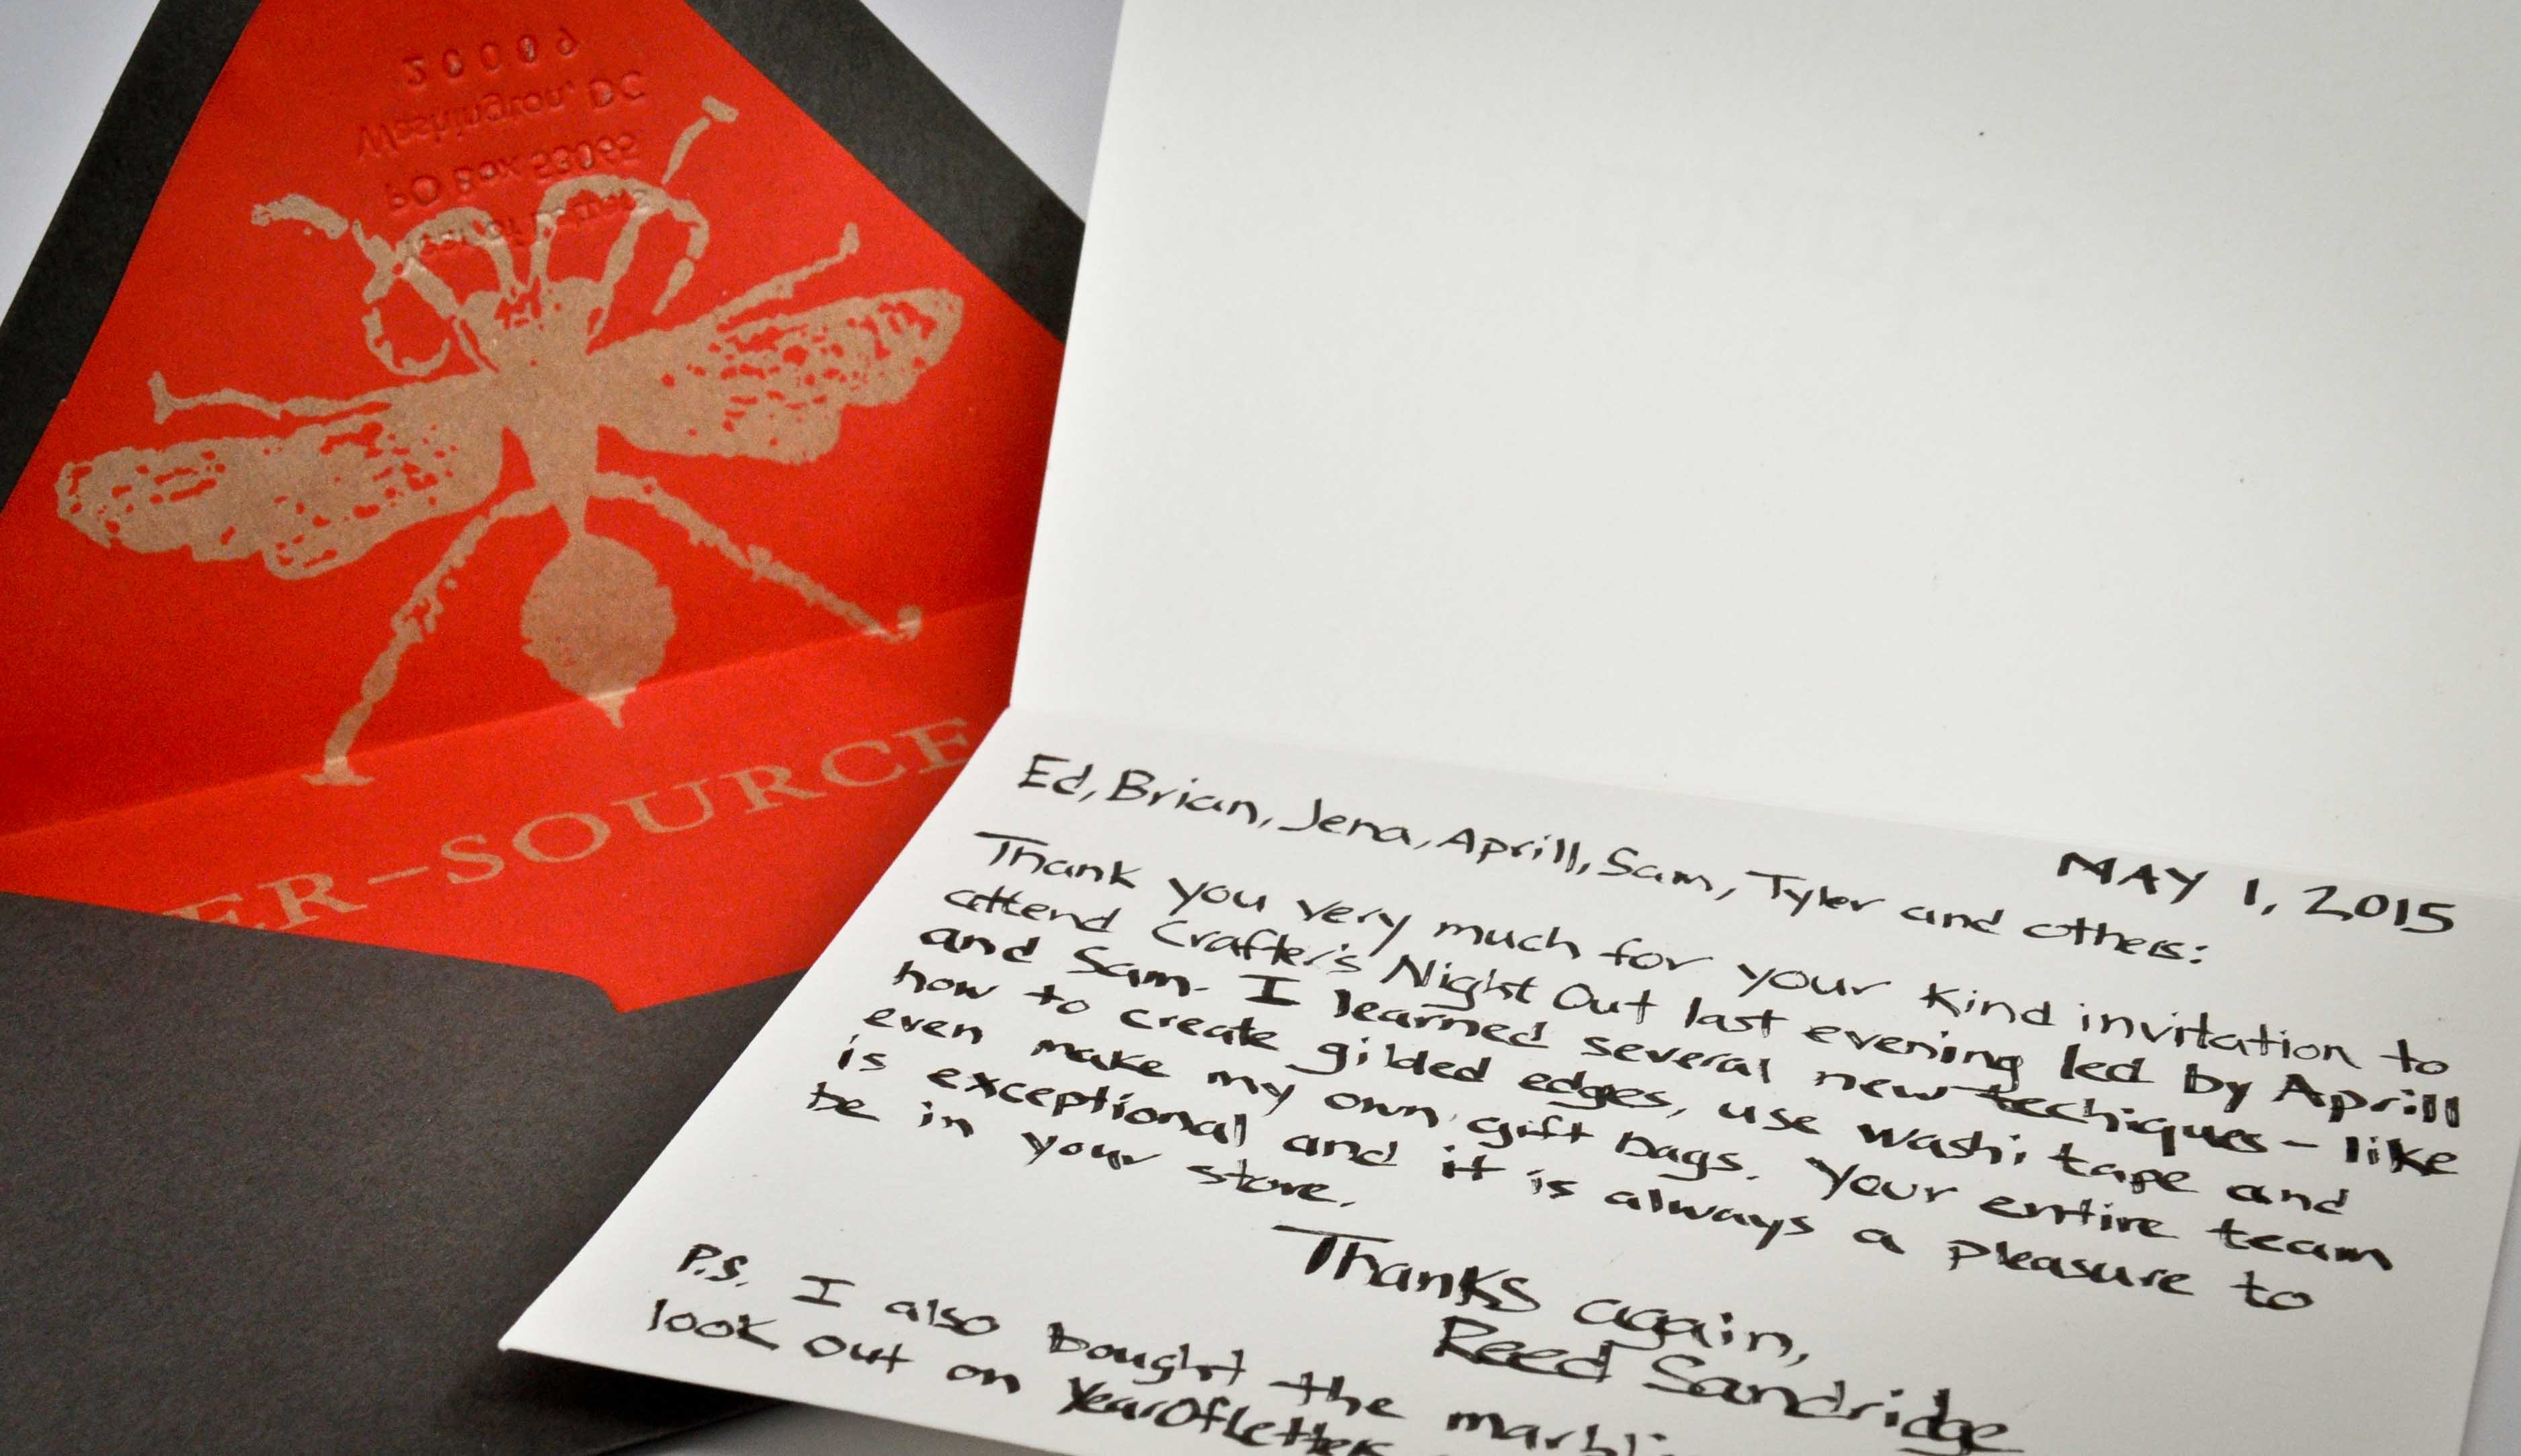 20009
Washington, DC
PO Box 53065
Year of Letters
ER-SOURCE
MAY 1, 2015
Ed, Brian, Jena, Aprill, Sam, Tyler and others:
Thank you very much for your kind invitation to
attend Crafter's Night Out last evening led by Aprill
and Sam. I learned several new techiques - like
how to create gilded edges, use washi tape and
even make my own gift bags. Your entire team
is exceptional and it is always a pleasure to
be in your store.
Thanks again,
Reed Sandridge
P.S. I also bought the marbli
look out on YearOfLetters